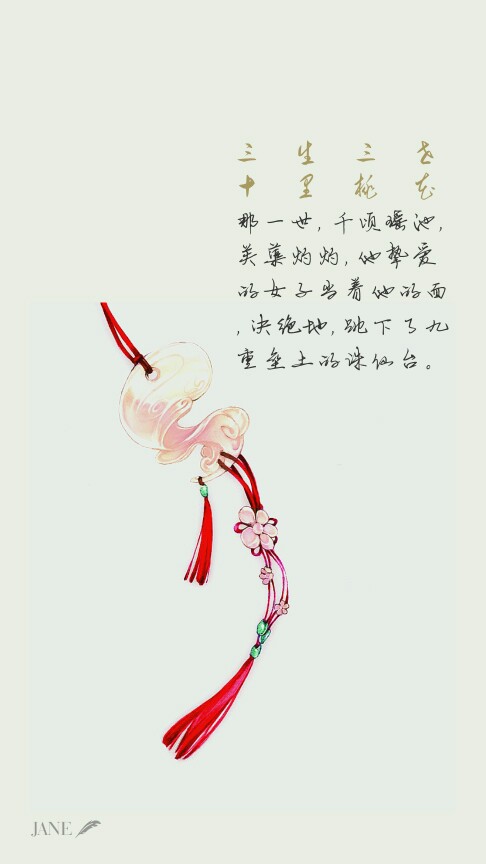 三生三世
十里桃花
那一世，千顷瑶池，
芙蕖灼灼，他挚爱
的女子当着他的面
，决绝地，跳下了九
重垒土的诛仙台。
JANE